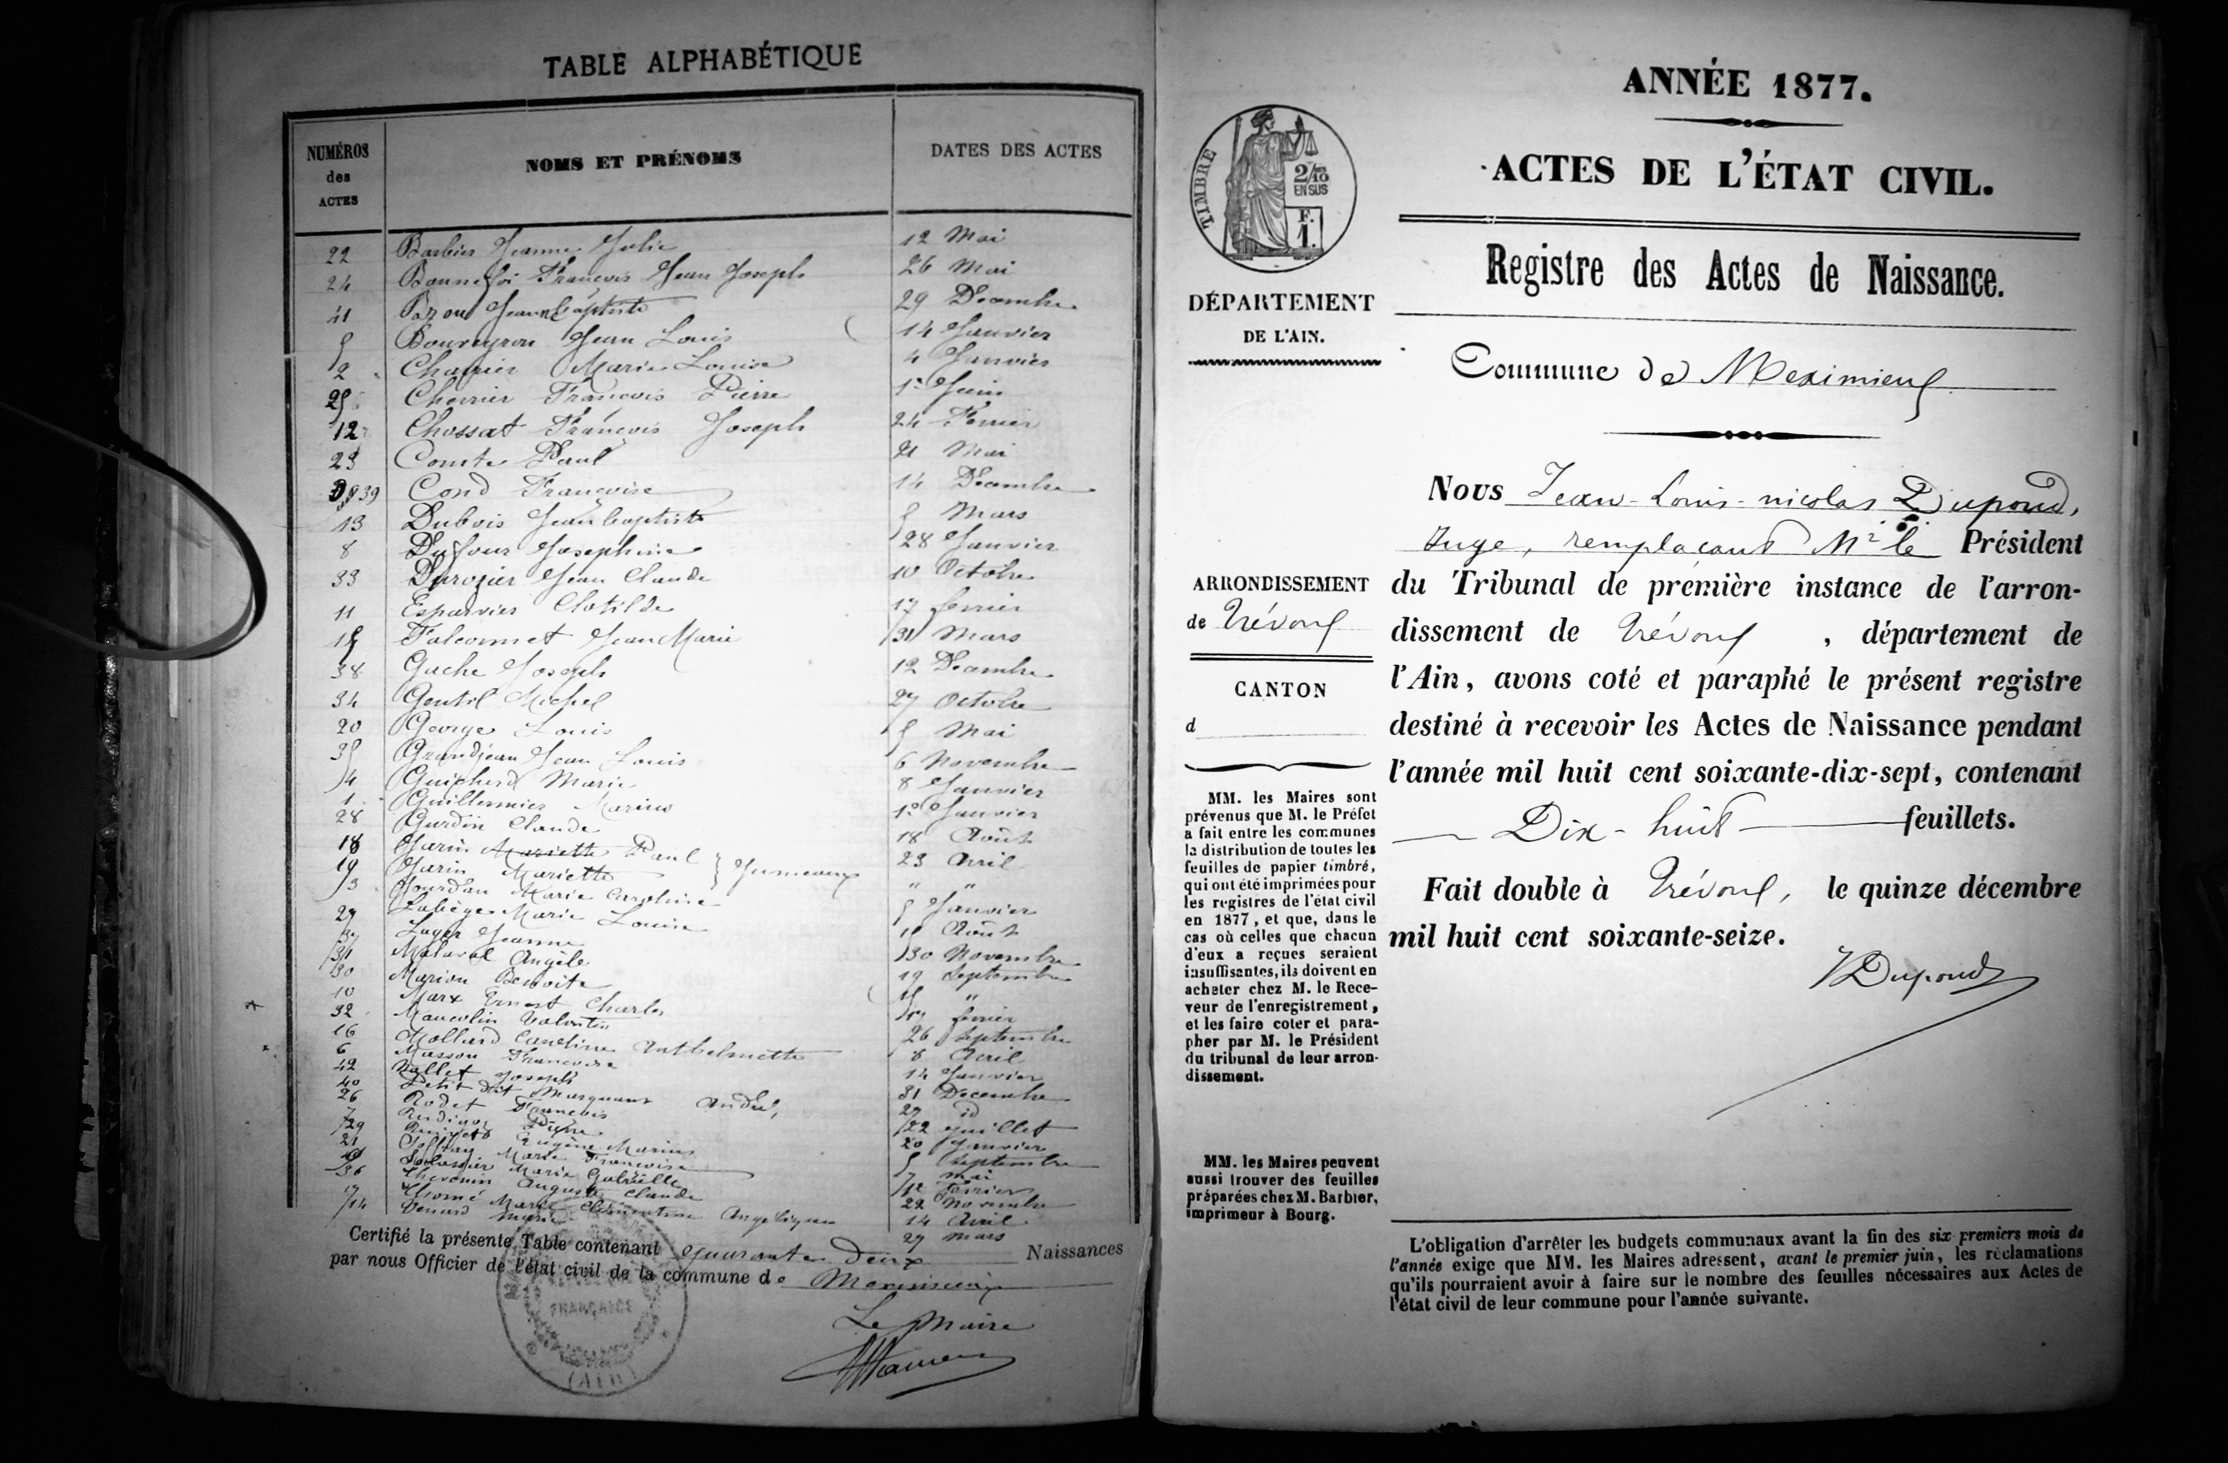 TABLE ALPHABÉTIQUE
NUMÉROS des ACTES
NOMS ET PRÉNOMS
DATES DES ACTES
22 Barbier Jeanne Julie 12 Mai
24 Bonnefoi François Jean Joseph 26 Mai
41 Bozon Jean Baptiste 29 Décembre
5 Bouveyron Jean Louis 14 Janvier
2 Charrier Marie Louise 4 Janvier
25 Cherrier François Pierre 1er Juin
12 Chossat François Joseph 24 Février
23 Comte Paul 21 Mai
39 Cond Françoise 14 Décembre
13 Dubois Jean baptiste 5 Mars
8 Dufour Josephine 28 Janvier
33 Durozier Jean Claude 10 Octobre
11 Esparvier Clotilde 17 février
15 Falconnet Jean Marie 31 Mars
38 Gache Joseph 12 Décembre
34 Gentil Michel 27 Octobre
20 George Louis 5 Mai
35 Grandjean Jean Louis 6 Novembre
4 Guichard Marie 8 Janvier
1 Guillermier Marius 1er Janvier
28 Gurdin Claude 18 Août
18 Jarin Mariette Paul } Jumeaux 23 Avril
19 Jarin Mariette " "
3 Jourdan Marie Caroline 5 Janvier
27 Labège Marie Louise 10 Août
37 Luyer Jeanne 30 Novembre
31 Malaval Angèle 19 Septembre
30 Marion Benoite 15 "
10 Marx Ernest Charles 17 février
32 Maucolin Valentin 26 Septembre
16 Mollard Caroline Anthelmette 8 Avril
6 Masson Françoise 14 Janvier
42 Nallet Joseph 31 Décembre
40 Petit dit Marquant André 29 id
26 Rodet François 22 Juillet
7 Pierre 20 Janvier
29 Eugène Marius 5 Septembre
21 Marie Françoise 7 Mai
9 Marie Gabrielle 12 Février
36 Thevenin Auguste Claude 22 Novembre
17 Thomé Marie Clémentine Angélique 14 Avril
14 Venard Marie 29 Mars
Certifié la présente Table contenant quarante Deux Naissances
par nous Officier de l'état civil de la commune de Meximieux
Le Maire
FRANÇAISE
(AIN)
ANNÉE 1877.
ACTES DE L'ÉTAT CIVIL.
TIMBRE
2/10 EN SUS
F. 1.
DÉPARTEMENT
DE L'AIN.
Registre des Actes de Naissance.
Commune de Meximieux
Nous Jean-Louis-nicolas Dupond,
Juge, remplaçant Mr le Président
du Tribunal de première instance de l'arron-
dissement de Trévoux, département de
l'Ain, avons coté et paraphé le présent registre
destiné à recevoir les Actes de Naissance pendant
l'année mil huit cent soixante-dix-sept, contenant
Dix-huit feuillets.
Fait double à Trévoux, le quinze décembre
mil huit cent soixante-seize.
Dupond
ARRONDISSEMENT
de Trévoux
CANTON
d
MM. les Maires sont
prévenus que M. le Préfet
a fait entre les communes
la distribution de toutes les
feuilles de papier timbré,
qui ont été imprimées pour
les registres de l'état civil
en 1877, et que, dans le
cas où celles que chacun
d'eux a reçues seraient
insuffisantes, ils doivent en
acheter chez M. le Rece-
veur de l'enregistrement,
et les faire coter et para-
pher par M. le Président
du tribunal de leur arron-
dissement.
MM. les Maires peuvent
aussi trouver des feuilles
préparées chez M. Barbier,
imprimeur à Bourg.
L'obligation d'arrêter les budgets communaux avant la fin des six premiers mois de
l'année exige que MM. les Maires adressent, avant le premier juin, les réclamations
qu'ils pourraient avoir à faire sur le nombre des feuilles nécessaires aux Actes de
l'état civil de leur commune pour l'année suivante.